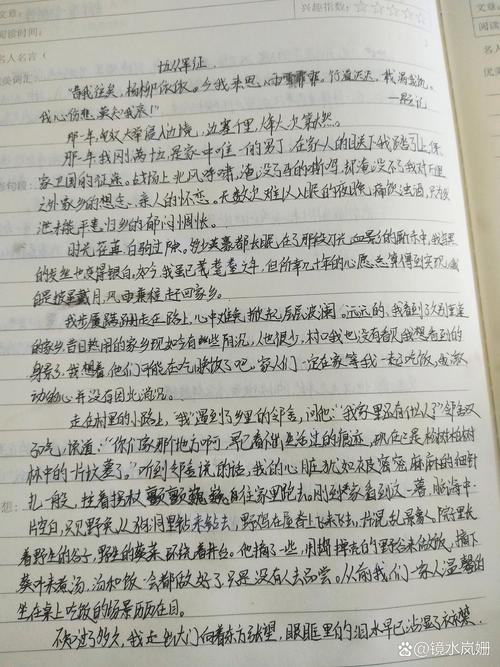 文章:
兴趣指数:☆☆☆☆☆
阅读时间:
名人名言(
优美词汇:
十五从军征
“昔我往矣,杨柳依依。今我来思,雨雪霏霏。行道迟迟,载渴载饥。
我心伤悲,莫知我哀!”
——题记
那一年,匈奴大举侵入边境,边塞千里,烽火次第燃。
那一年我刚满十五是家中唯一的男丁,在家人的目送下我踏上保
家卫国的征途。战场上北风呼啸,淹没了马的嘶鸣,却淹没不了我对千里
之外家乡的想念,亲人的怀恋。无数次难以入眠的夜晚,痛饮浊酒,只为发
泄未能平患归乡的郁闷惆怅。
时光荏苒,白驹过隙。多少英豪都长眠在了那段刀光血影的
的发丝也变得银白。如今,我虽已耄耋之年,但所幸几十年的心愿总算得到实现,
的是披星戴月,风雨兼程赶回家乡。
我步履蹒跚走在路上,心中难免掀起层层波澜。远远的,我看到了
的家乡,昔日热闹的家乡现如今有些阴沉,人也很少,村口我也没有看见我想看到的
身影,我想着,他们可能在吃晚饭了吧,家人们一定在家等我一起吃饭,我激
动的心并没有因此消沉。
走在村里的小路上,“我”遇到了乡里的邻舍,问他:“我家里还有什么人了”邻舍叹
了口气,慌道:“你们家那个地方啊,早已看不出生活过的痕迹,现在已是松树柏树
林中的一片坟墓了。”听到邻舍说的话,我的心脏犹如被密密麻麻的细针
扎一般,拄着拐杖颤颤巍巍自往家里跑去。刚到家看到这一幕,脑海中一
片空白,只见野兔从狗洞里钻来钻去,野鸡在屋脊上飞来飞去,一片混乱景象,院子里长
着野生的谷子,野生的葵菜环绕着井台。他摘了一些,用捣掉壳的野谷来做饭,摘下
葵叶来煮汤,汤和饭一会都做好了只是没有人去品尝。从前我们一家人温馨的
坐在桌上吃饭的场景历历在目。
不知过了多久,我走出大门向着东方张望,眼眶里的泪水早已沾湿了衣襟。
想:
@镜水岚姗